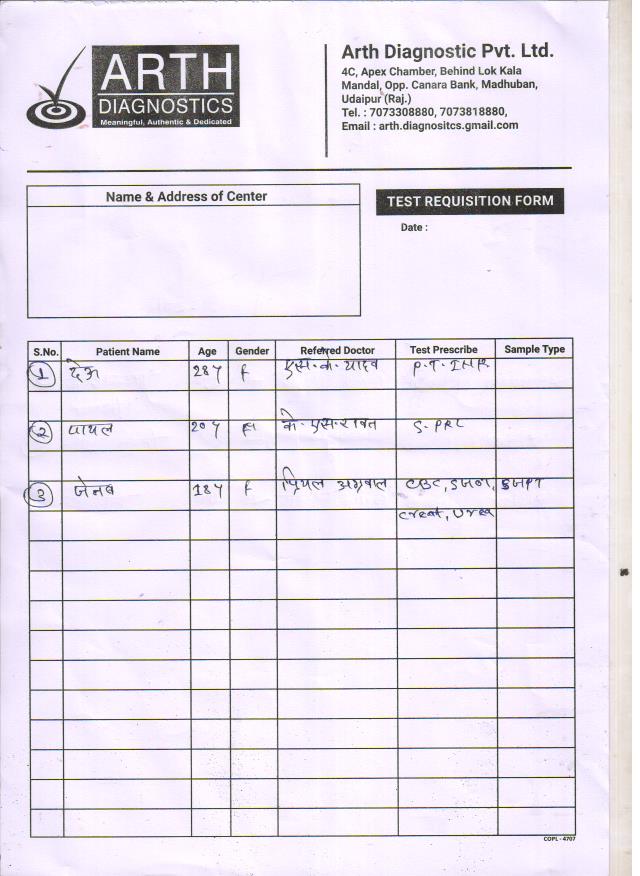 ARTH
DIAGNOSTICS
Meaningful, Authentic & Dedicated
Arth Diagnostic Pvt. Ltd.
4C, Apex Chamber, Behind Lok Kala
Mandal, Opp. Canara Bank, Madhuban,
Udaipur (Raj.)
Tel. : 7073308880, 7073818880,
Email : arth.diagnositcs.gmail.com
Name & Address of Center
TEST REQUISITION FORM
Date :
S.No. Patient Name Age Gender Referred Doctor Test Prescribe Sample Type
1 देऊ 28Y F एस. के. यादव P.T. INR
2 पायल 20Y के. एस. रावत S. PRL
3 जेनब 18Y F प्रियल अग्रवाल CBC, SGPT
Creat, Urea
COPL - 4707